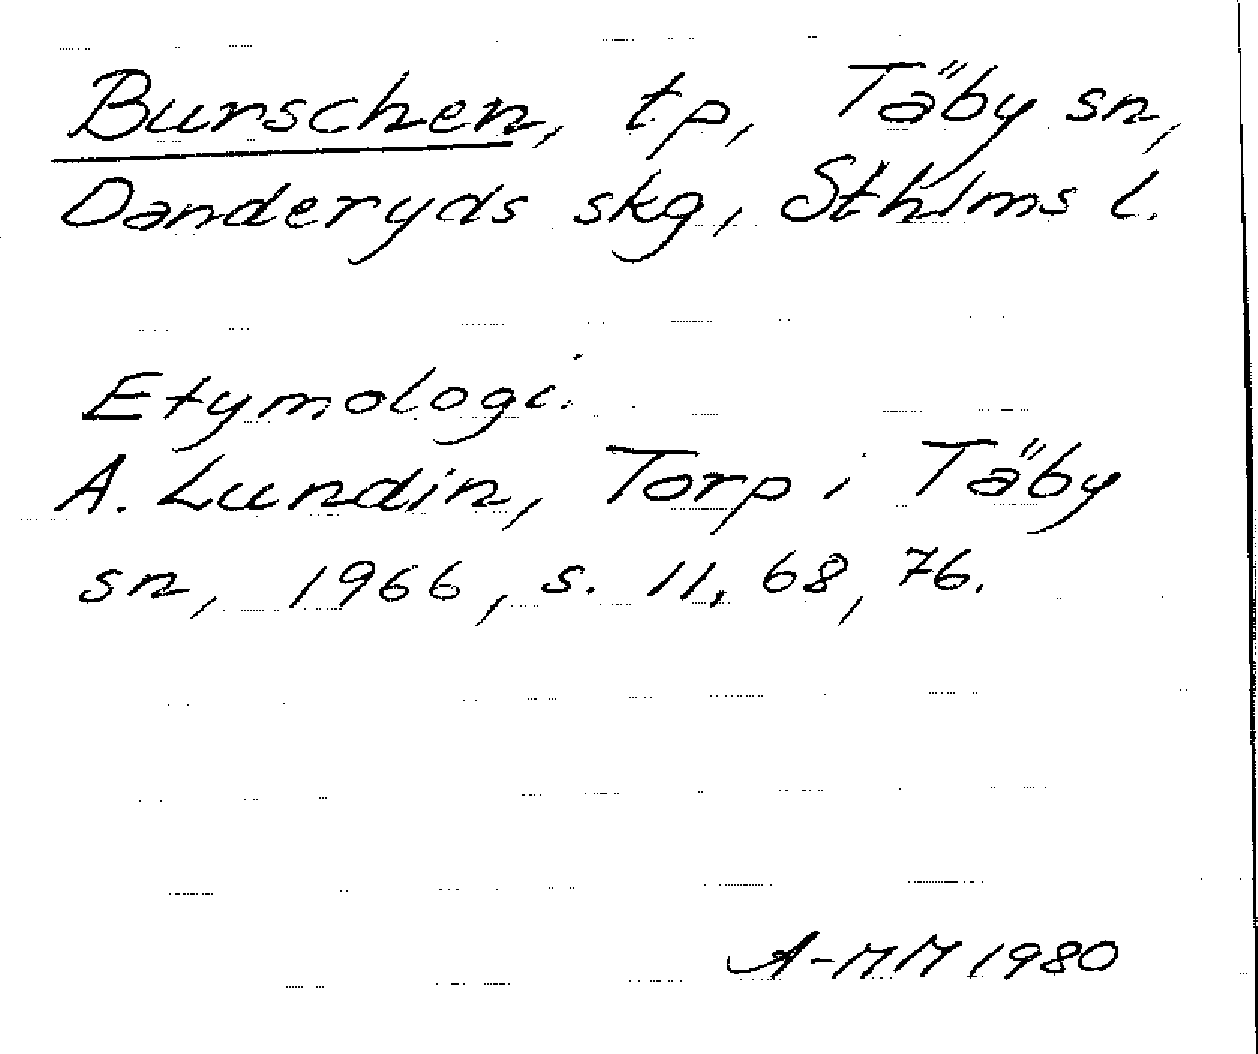 Burschen, tp, Täby sn,
Danderyds skg, Sthlms l.
Etymologi.
A. Lundin, Torp i Täby
sn, 1966, s. 11, 68, 76.
A-MM 1980